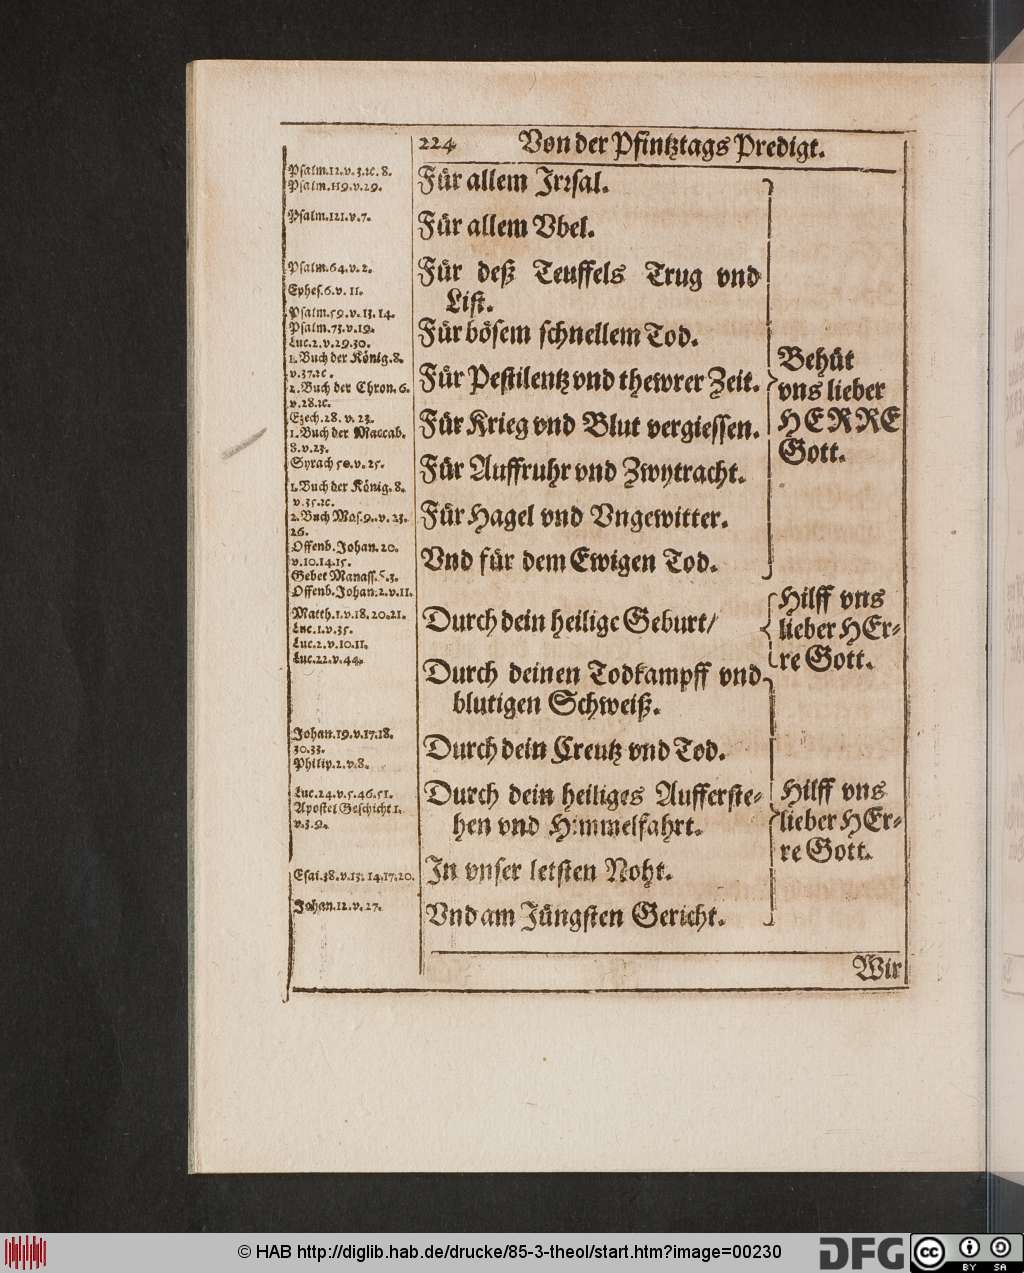 224 Von der Pfintztags Predigt.
Psalm.12.v.3.ꝛc.8.
Psalm.119.v.29.
Psalm.121.v.7.
Psalm.64.v.2.
Ephes.6.v.11.
Psalm.59.v.13.14.
Psalm.73.v.19.
Luc.2.v.29.30.
1.Buch der König.8.
v.37.ꝛc.
2.Buch der Chron.6.
v.28.ꝛc.
Ezech.28.v.23.
1.Buch der Maccab.
8.v.23.
Syrach 50.v.25.
1.Buch der König.8.
v.35.ꝛc.
2.Buch Mos.9.v.23.
26.
Offenb.Johan.20.
v.10.14.15.
Gebet Manass.
Offenb.Johan.2.v.11.
Matth.1.v.18.20.21.
Luc.1.v.35.
Luc.2.v.10.11.
Luc.22.v.44.
Johan.19.v.17.18.
30.33.
Philip.2.v.8.
Luc.24.v.5.46.51.
Apostel Geschicht 1.
v.3.9.
Esai.38.v.13.14.17.20.
Johan.12.v.27.
Für allem Irꝛsal.
Für allem Vbel.
Für deß Teuffels Trug vnd
List.
Für bösem schnellem Tod.
Für Pestilentz vnd thewrer Zeit.
Für Krieg vnd Blut vergiessen.
Für Auffruhr vnd Zwytracht.
Für Hagel vnd Vngewitter.
Vnd für dem Ewigen Tod.
Behüt
vns lieber
HERRE
Gott.
Durch dein heilige Geburt/
Hilff vns
lieber HEr-
re Gott.
Durch deinen Todkampff vnd
blutigen Schweiß.
Durch dein Creutz vnd Tod.
Durch dein heiliges Aufferste-
hen vnd Himmelfahrt.
In vnser letsten Noht.
Vnd am Jüngsten Gericht.
Hilff vns
lieber HEr-
re Gott.
Wir
© HAB http://diglib.hab.de/drucke/85-3-theol/start.htm?image=00230
DFG
cc BY SA